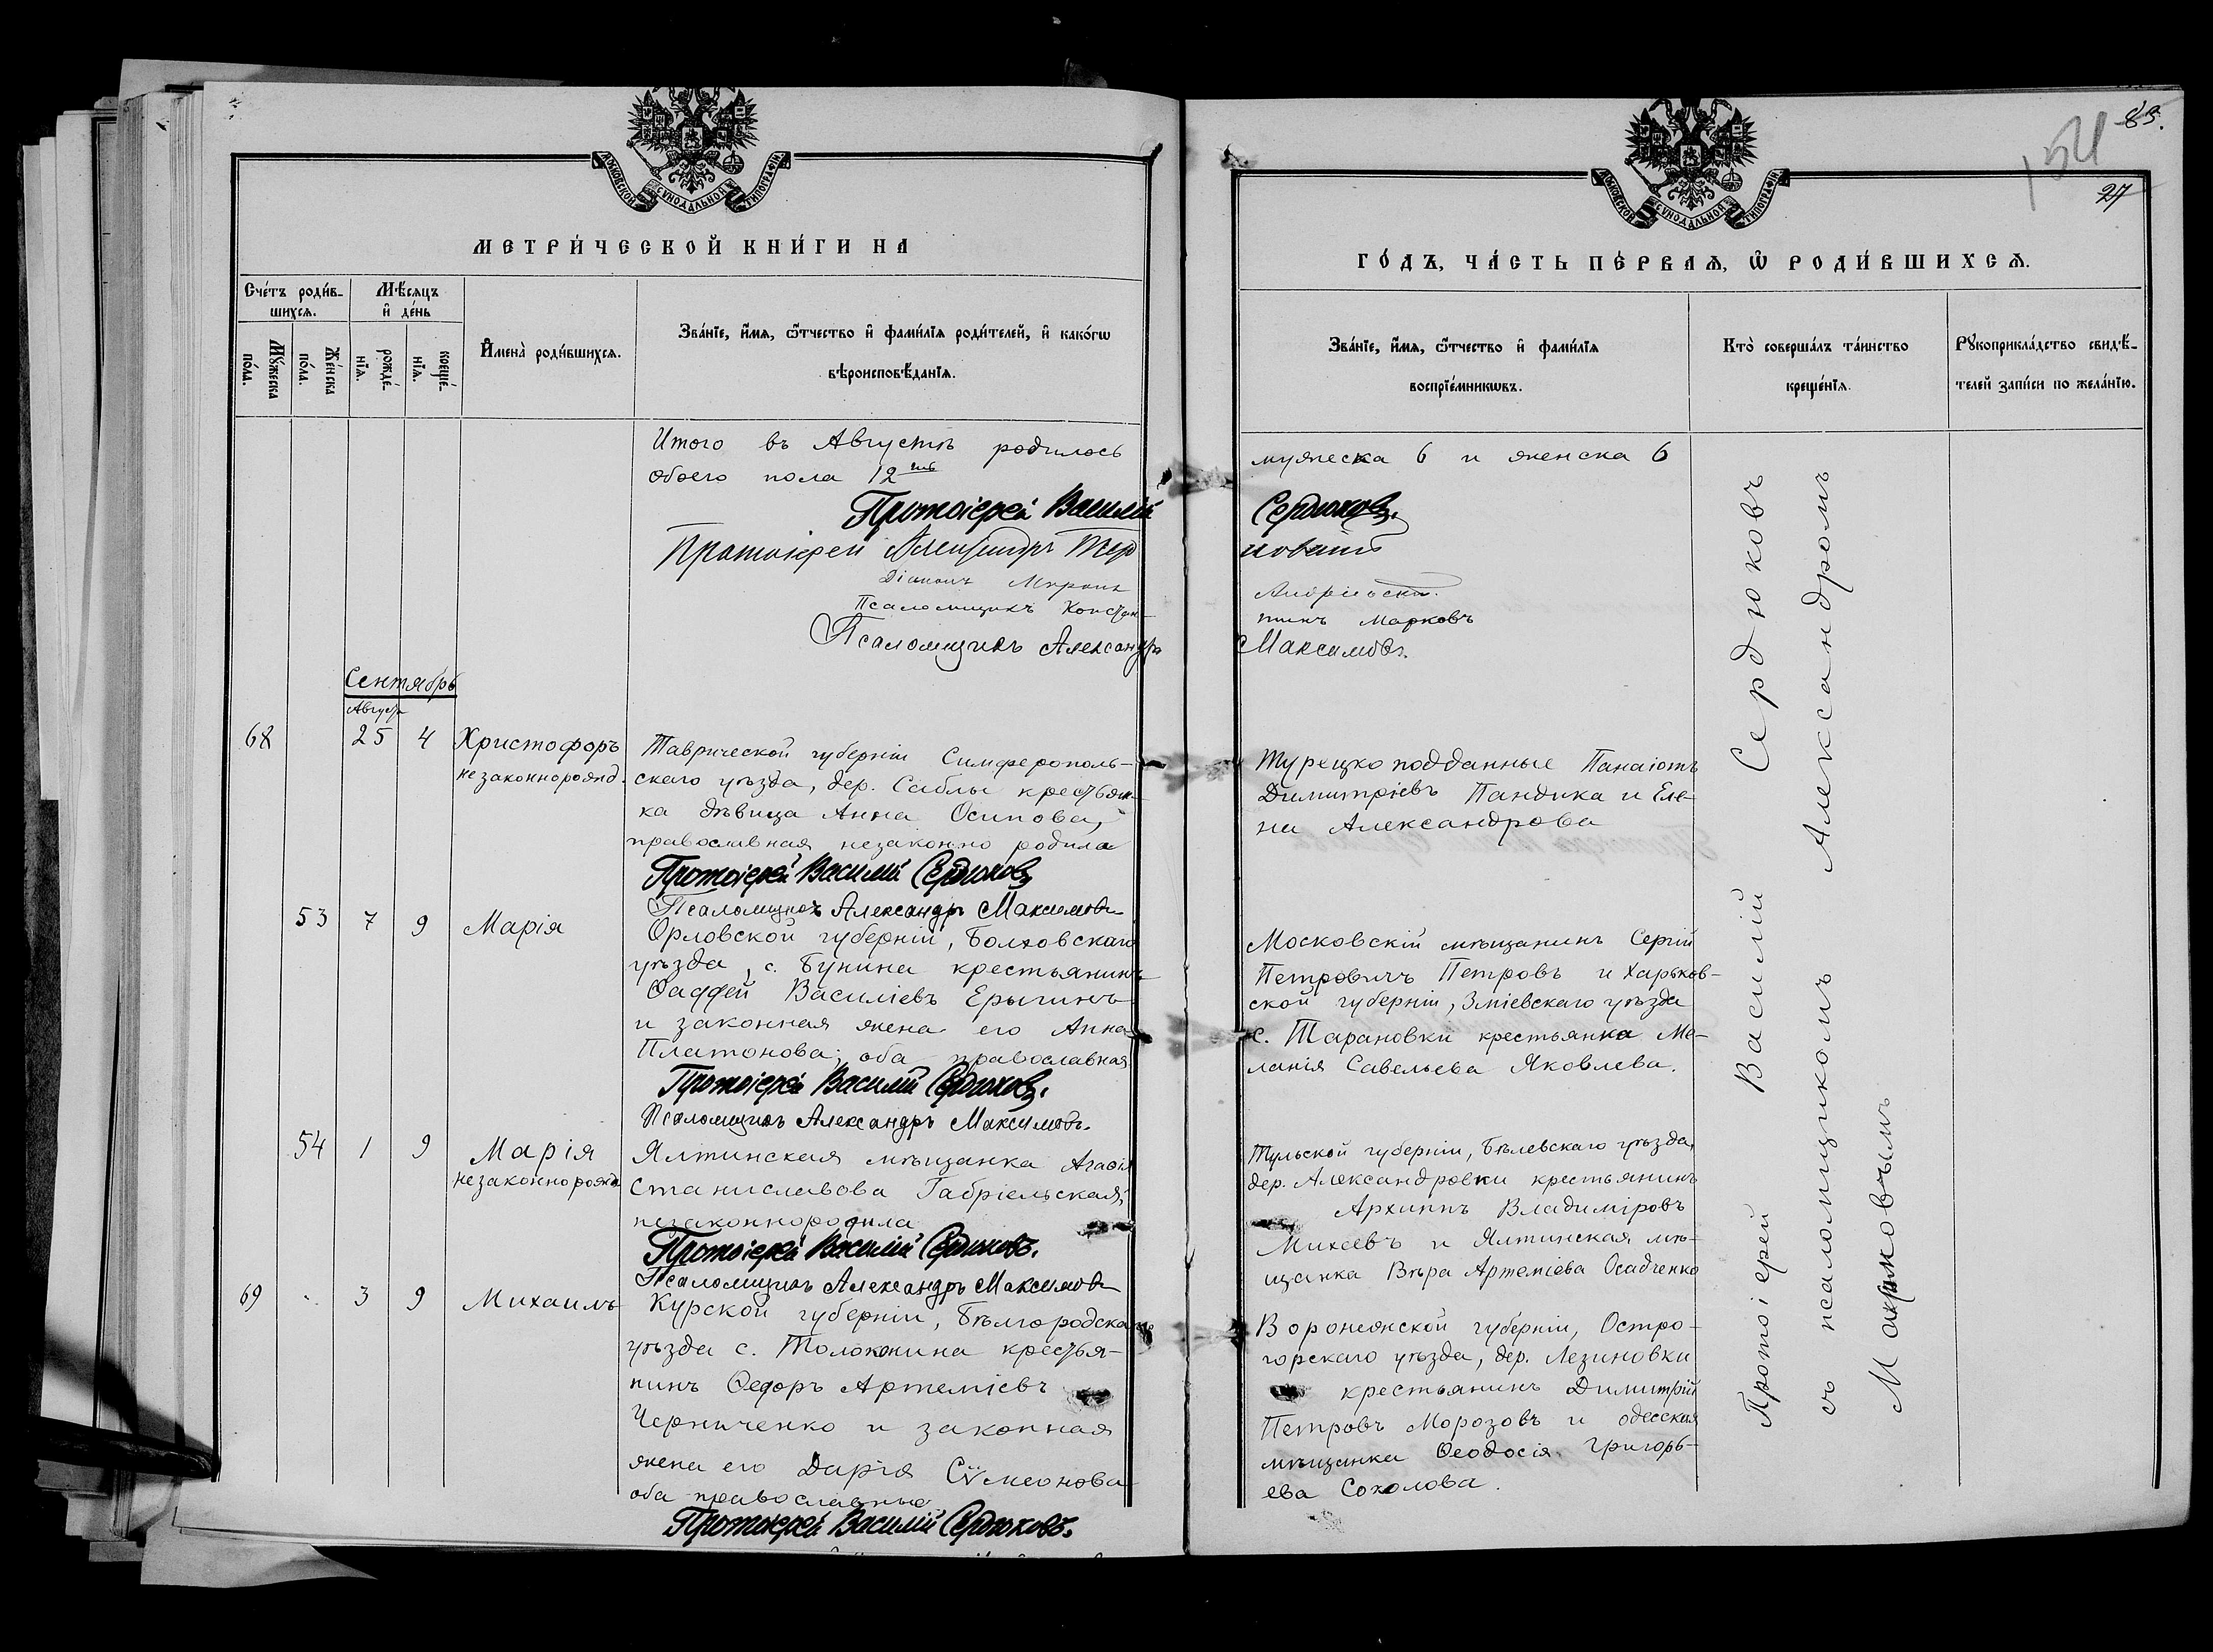 МОСКОВСКОЙ СУНОДАЛЬНОЙ ТИПОГРАФІИ
МЕТРИ́ЧЕСКОЙ КНИ́ГИ НА
Сче́тъ роди́в-
шихся.
Мѣ́сяцъ
и҆ де́нь
Мꙋ́жеска
по́ла.
Же́нска
по́ла.
рожде́-
нїя.
креще́-
нїя.
И҆мена̀ роди́вшихся.
Зва́нїе, и҆́мя, ѻ҆́тчество и҆ фами́лїя роди́телей, и҆ како́гѡ
вѣроисповѣ́данїя.
Итого въ Августѣ родилось
обоего пола 12ть
Протоіерей Василій
Протоіерей Александръ Тер
Діаконъ Миронъ
Псаломщикъ Констан-
Псаломщикъ Александръ
Сентябрь
Августа
68 25 4 Христофоръ
незаконнорожд.
Таврической губерніи Симферополь-
скаго уѣзда, дер. Саблы крестьян-
ка дѣвица Анна Осипова,
православная незаконно родила
Протоіерей Василій Сердюковъ
Псаломщикъ Александръ Максимовъ
53 7 9 Марія
Орловской губерніи, Болховскаго
уѣзда, с. Бунина крестьянинъ
Ѳаддей Василіевъ Ерыгинъ
и законная жена его Анна
Платонова; оба православная
Протоіерей Василій Сердюковъ.
Псаломщикъ Александръ Максимовъ.
54 1 9 Марія
незаконнорожд
Ялтинская мѣщанка Агафія
Станиславова Габріельская,
незаконнородила
Протоіерей Василій Сердюковъ.
Псаломщикъ Александръ Максимовъ
69 3 9 Михаилъ
Курской губерніи, Бѣлгородскаго
уѣзда с. Толоконина крестья-
нинъ Ѳедоръ Артеміевъ
Черниченко и законная
жена его Дарія Сѵмеонова
оба православные
Протоіерей Василій Сердюковъ.
83.
154
27
МОСКОВСКОЙ СУНОДАЛЬНОЙ ТИПОГРАФІИ
ГО́ДЪ, ЧА́СТЬ ПЕ́РВАЯ, Ѡ҆ РОДИ́ВШИХСЯ.
Зва́нїе, и҆́мя, ѻ҆́тчество и҆ фами́лїя
воспрїе́мникѡвъ.
Кто̀ соверша́лъ та́инство
креще́нїя.
Рꙋкоприкла́дство свидѣ́-
телей за́писи по жела́нїю.
мужеска 6 и женска 6
Сердюковъ.
новъ
тинъ Марковъ
Максимовъ.
Турецкоподданные Панаіотъ
Димитріевъ Пандика и Еле-
на Александрова
Московскій мѣщанинъ Сергій
Петровичъ Петровъ и Харьков-
ской губерніи, Зміевскаго уѣзда
с. Тарановки крестьянка Ме-
ланія Савельева Яковлева.
Тульской губерніи, Бѣлевскаго уѣзда,
дер. Александровки крестьянинъ
Архиппъ Владиміровъ
Михеевъ и Ялтинская мѣ-
щанка Вѣра Артеміева Осадченко
Воронежской губерніи, Остро-
горскаго уѣзда, дер. Лезиновки
крестьянинъ Димитрій
Петровъ Морозовъ и одесская
мѣщанка Ѳеодосія Григорь-
ева Соколова.
Протоіерей Василій Сердюковъ
съ псаломщикомъ Александромъ